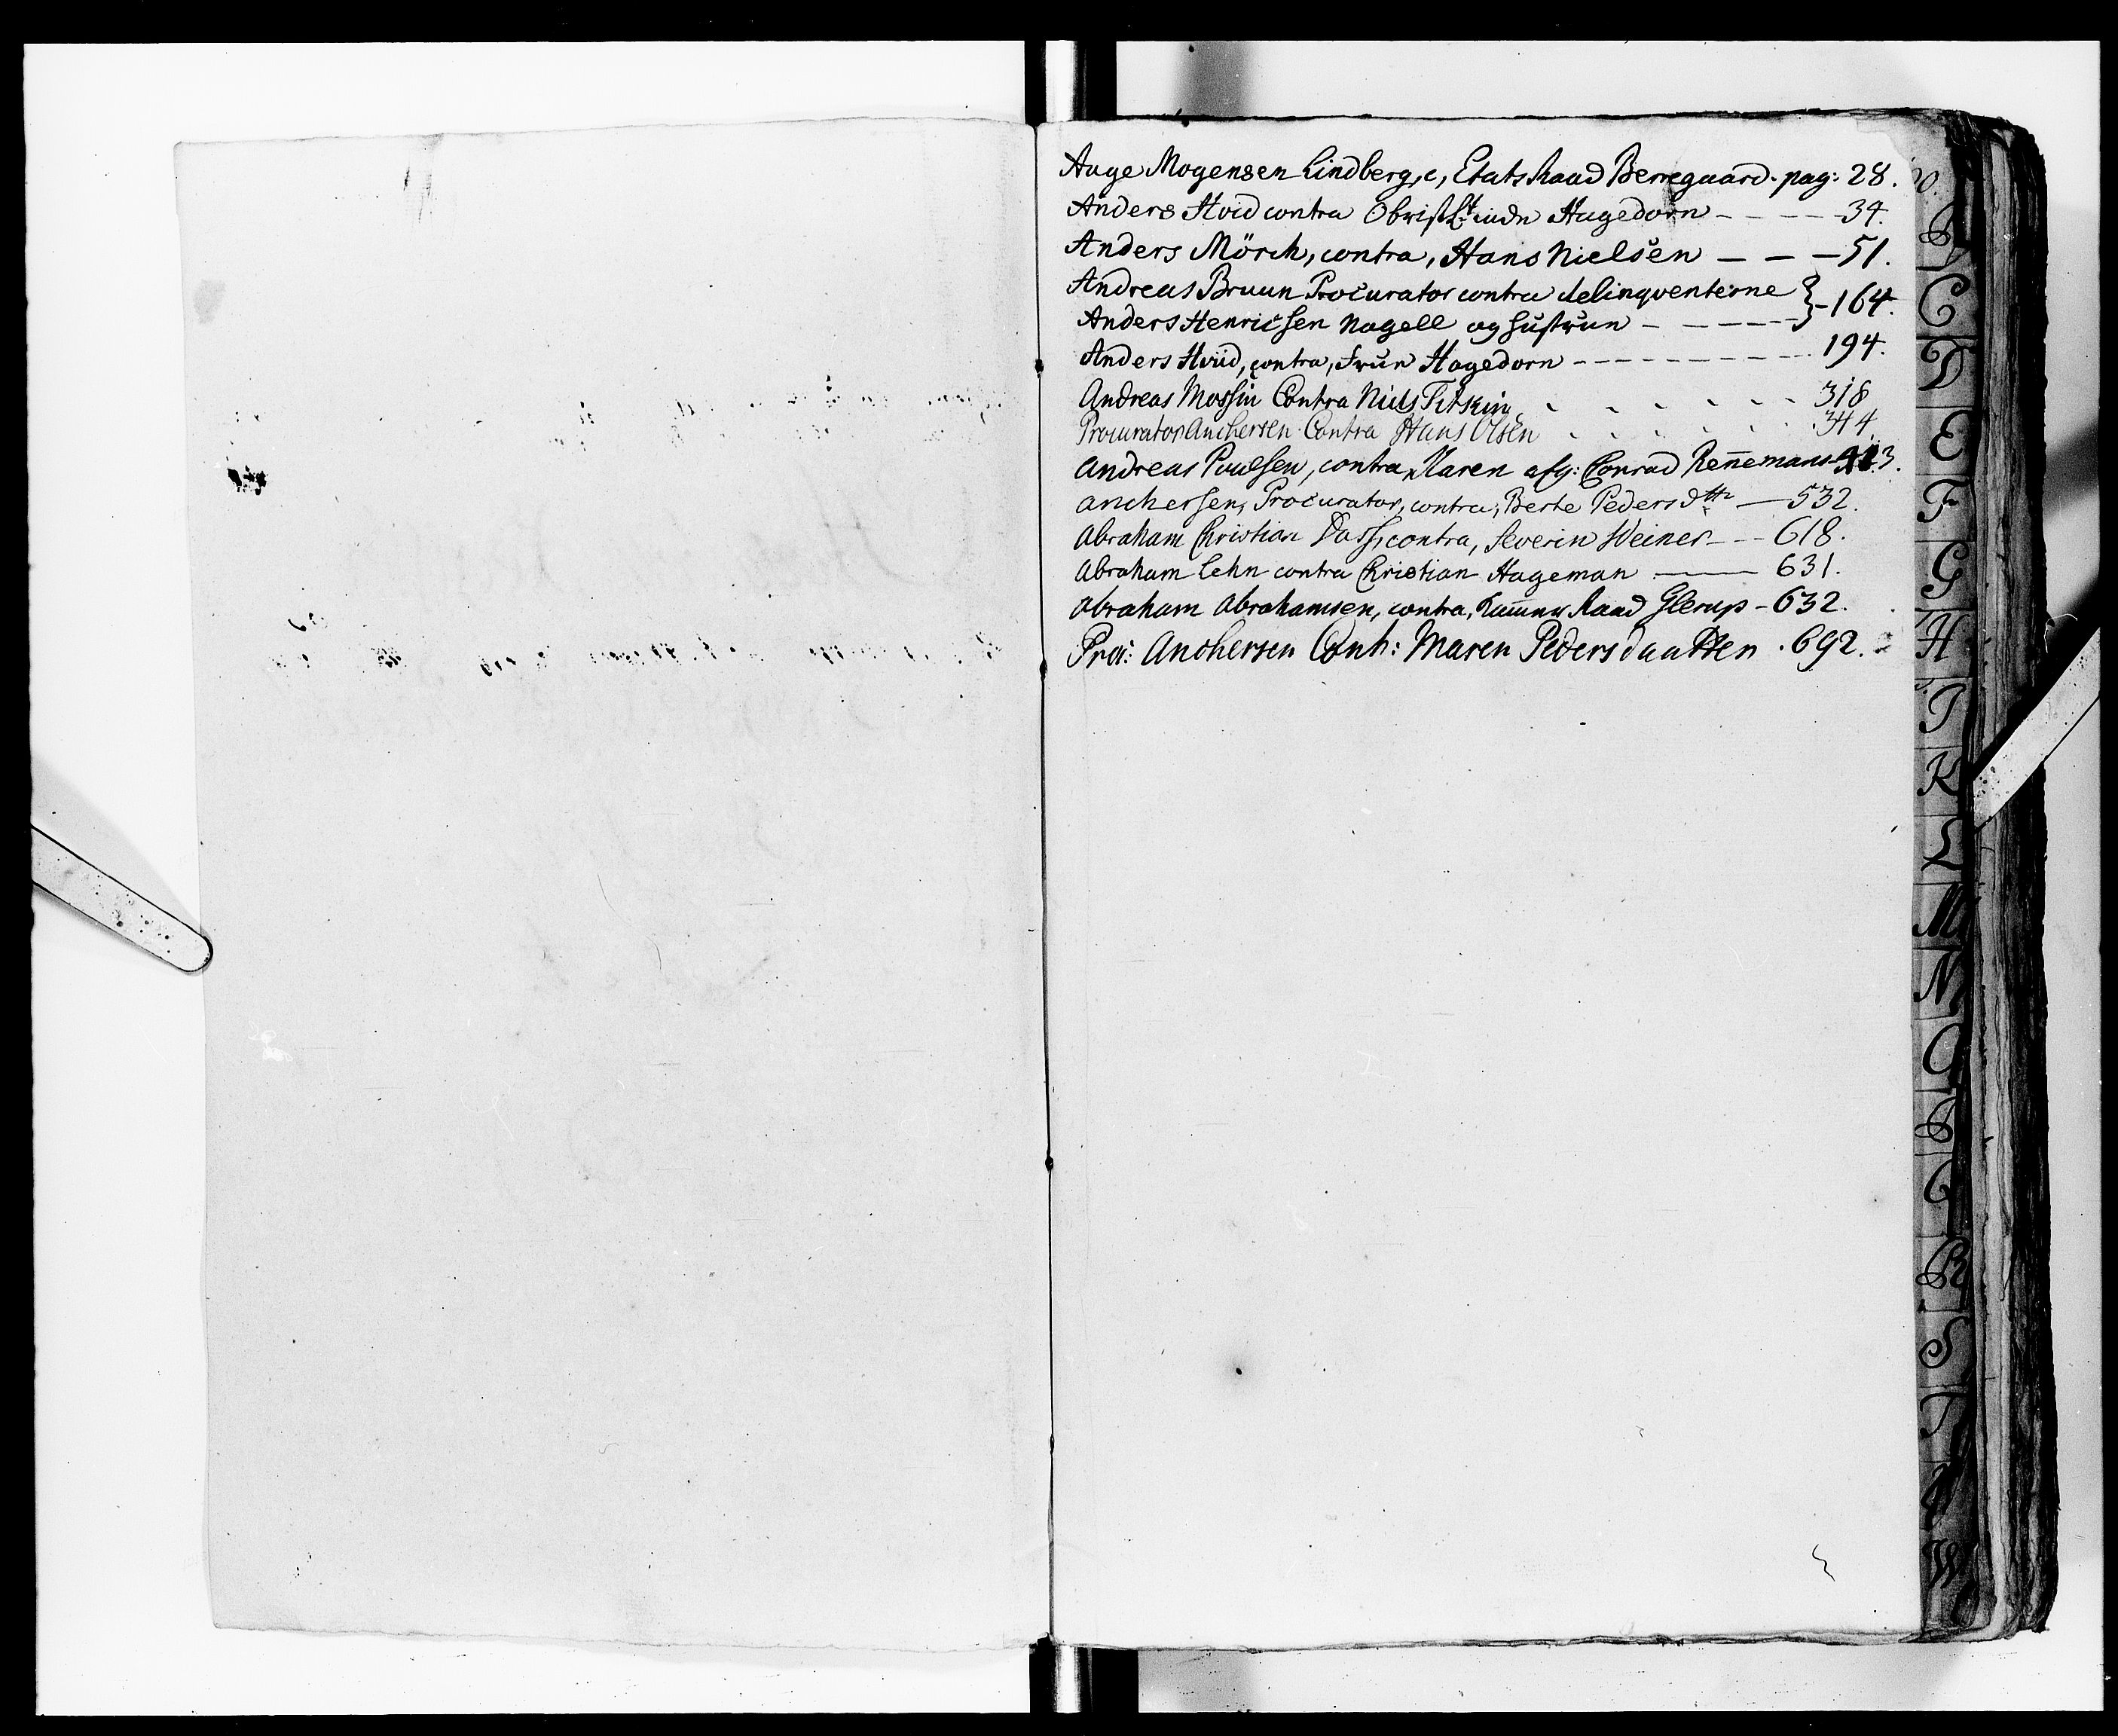 Aage Mogensen Lindberg, c, Etats Raad Berregaard. pag: 28.
Anders Hvid contra Obrist Lt inden Hagedorn - - - - 34.
Anders Mörch, contra, Hans Nielsen - - - 51.
Andreas Bruun Procurator contra delinqventerne
Anders Henricsen Nagell og Hustrun - - - - - } - 164.
Anders Hviid, contra, Frun Hagedorn - - - - - - - - - 194.
Andreas Mossin Contra Niels Titskin 318
Procurator Anchersen Contra Hans Olsen 344.
Andreas Poulsen, contra, Karen afg: Conrad Rennemans
Anchersen, Procurator, contra, Berte Peders dttr — 532.
Abraham Christian Dass, contra, Severin Weiner - - - 618.
Abraham Lehn contra Christian Hageman — 631.
Abraham Abrahamsen, contra, Kammer Raad Glerup - 632.
Pro: Anchersen Contr: Maren Pedersdaatter . 692.
B
C
D
E
F
G
H
I
K
L
M
N
O
P
Q
R
S
T
V
W